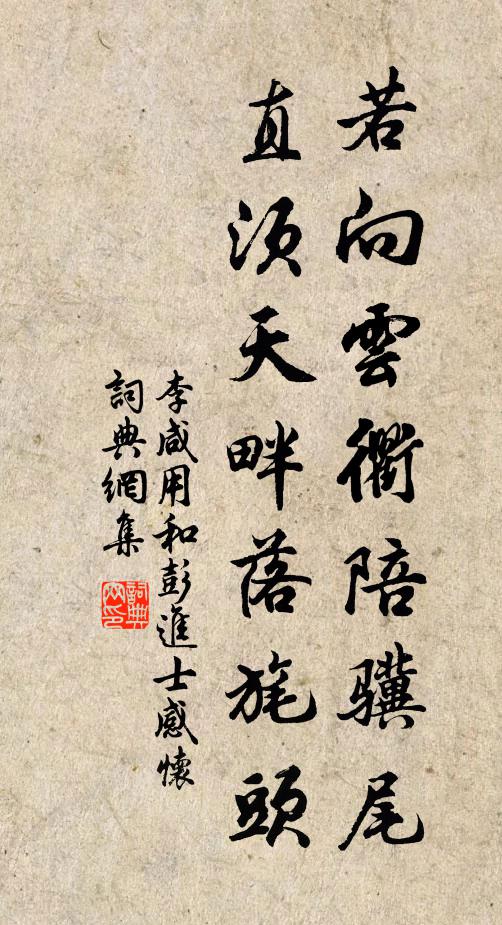 若向雲衢陪驥尾
直須天畔落旄頭
李咸用和彭進士感懷
詞典網集
詞典網印